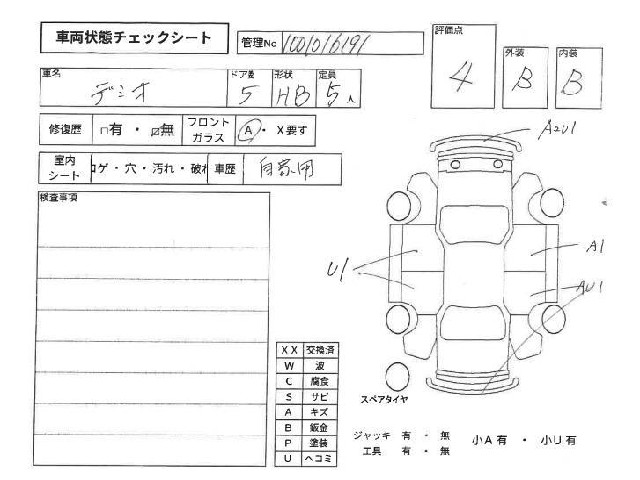 車両状態チェックシート 管理No 1001016191
評価点 4 外装 B 内装 B
車名 デミオ ドア数 5 形状 HB 定員 5人
修復歴 □有 ・ ☑無 フロントガラス A ・ X要す
室内シート コゲ・穴・汚れ・破れ 車歴 自家用
検査事項
A2U1
A1
U1
AU1
XX 交換済
W 波
C 腐食
S サビ
A キズ
B 鈑金
P 塗装
U ヘコミ
スペアタイヤ
ジャッキ 有 ・ 無
工具 有 ・ 無
小A有 ・ 小U有